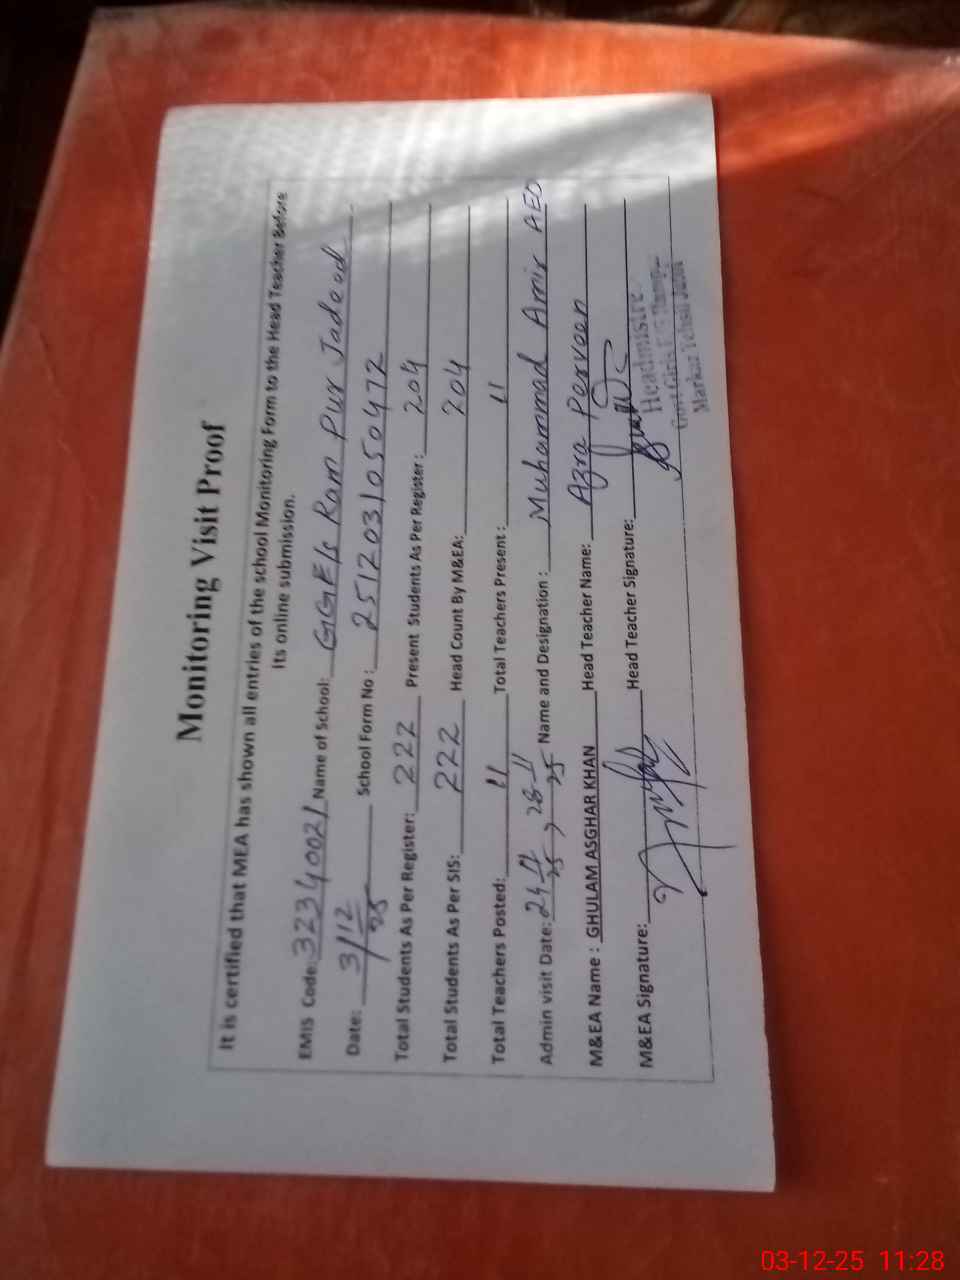 Monitoring Visit Proof
It is certified that MEA has shown all entries of the school Monitoring Form to the Head Teacher Before
its online submission.
EMIS Code: 32340021 Name of School: GGE/s Ram Pur Jadeed
Date: 3/12/25 School Form No : 2512031050472
Total Students As Per Register: 222 Present Students As Per Register: 204
Total Students As Per SIS: 222 Head Count By M&EA: 204
Total Teachers Posted: 11 Total Teachers Present : 11
Admin visit Date: 24-11-25, 28-11-25 Name and Designation : Muhammad Amir AEO
M&EA Name : GHULAM ASGHAR KHAN Head Teacher Name: Azra Perveen
M&EA Signature: Head Teacher Signature:
Headmistre
Govt Girls
Markaz Tehsil
03-12-25 11:28